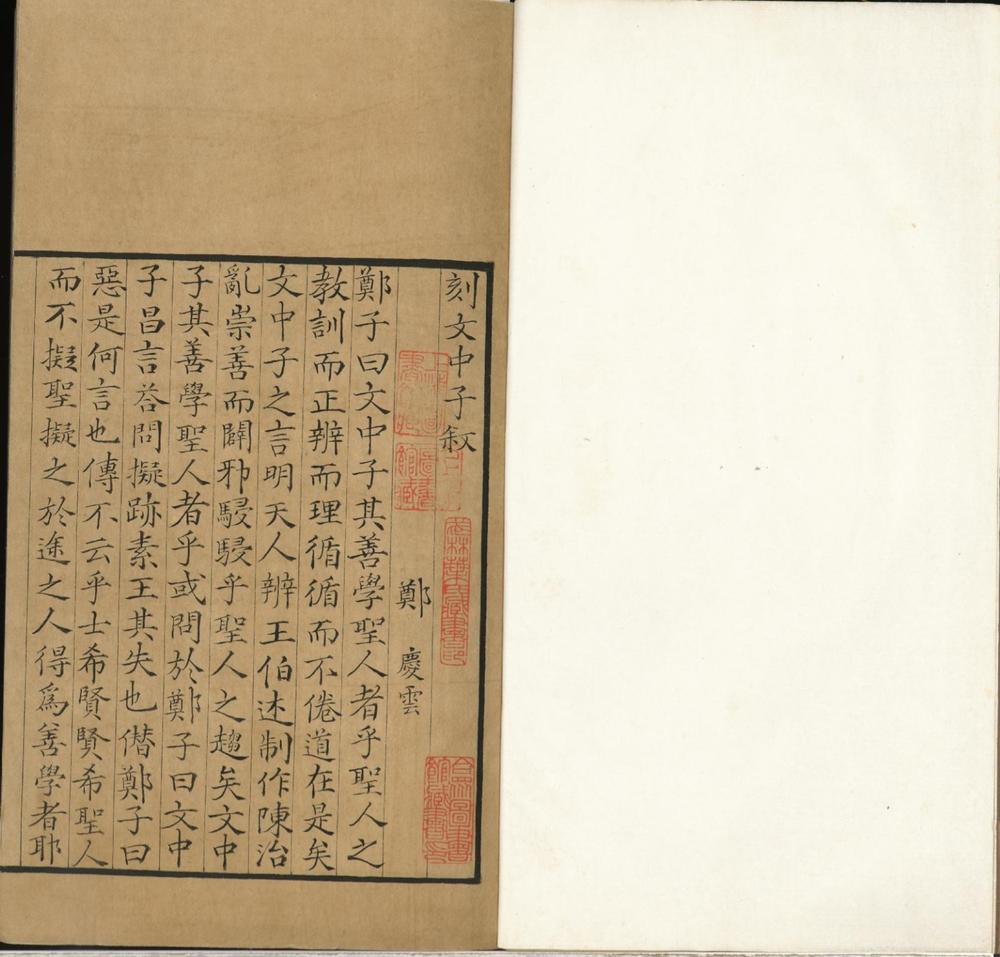 刻文中子叙
鄭慶雲
鄭子曰文中子其善學聖人者乎聖人之
教訓而正辨而理循循而不倦道在是矣
文中子之言明天人辨王伯述制作陳治
亂崇善而闢邪駸駸乎聖人之趨矣文中
子其善學聖人者乎或問於鄭子曰文中
子昌言荅問擬跡素王其失也僣鄭子曰
惡是何言也傳不云乎士希賢賢希聖人
而不擬聖擬之於途之人得爲善學者耶
武林葉氏藏書印
合眾圖書館藏書印